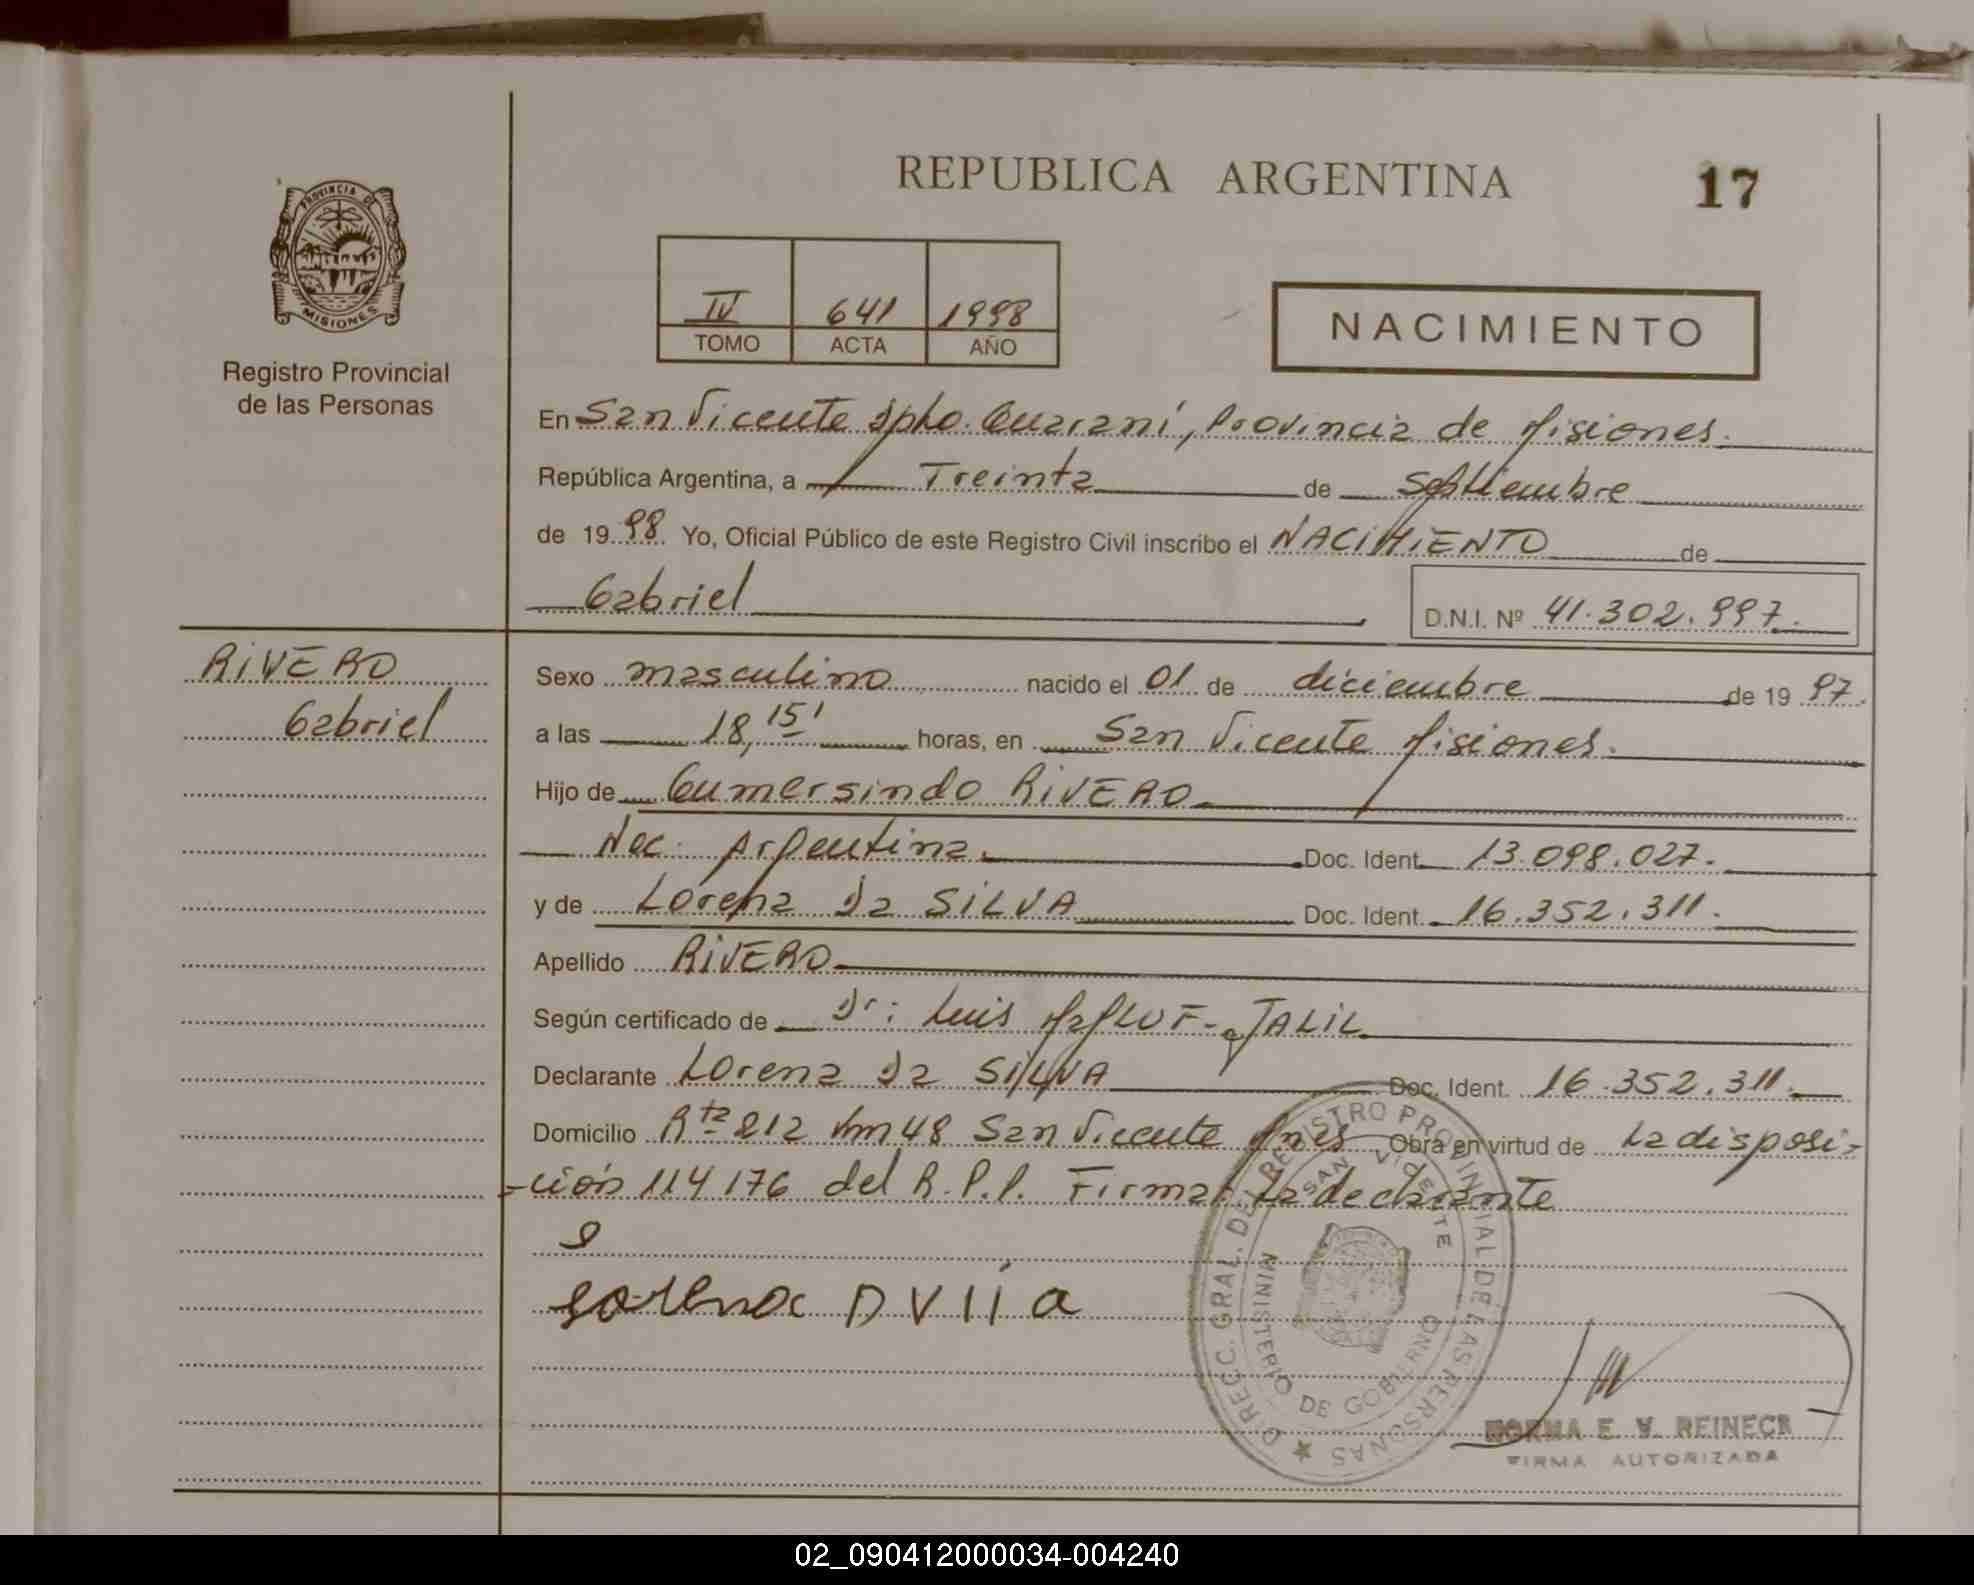 REPUBLICA ARGENTINA
17
PROVINCIA DE
MISIONES
Registro Provincial
de las Personas
IV 641 1998
TOMO ACTA AÑO
NACIMIENTO
En San Vicente Dpto. Guaraní, Provincia de Misiones.
República Argentina, a Treinta de Septiembre
de 19 98. Yo, Oficial Público de este Registro Civil inscribo el NACIMIENTO de
Gabriel D.N.I. Nº 41.302.997.
RIVERO
Gabriel
Sexo masculino nacido el 01 de diciembre de 19 97.
a las 18,15' horas, en San Vicente Misiones.
Hijo de Gumersindo RIVERO
Nac. Argentina. Doc. Ident. 13.098.027.
y de Lorena Da SILVA Doc. Ident. 16.352.311.
Apellido RIVERO
Según certificado de Dr: Luis JALIL
Declarante Lorena Da SILVA Doc. Ident. 16.352.311.
Domicilio Rta 212 Km 48 San Vicente Mnes Obra en virtud de La disposi-
-ción 114/76 del R.P.P. Firma La declarante
DIRECC. GRAL. DEL REGISTRO PROVINCIAL DE LAS PERSONAS
SAN VICENTE
MINISTERIO DE GOBIERNO
NORMA E. V. REINECK
FIRMA AUTORIZADA
02_090412000034-004240